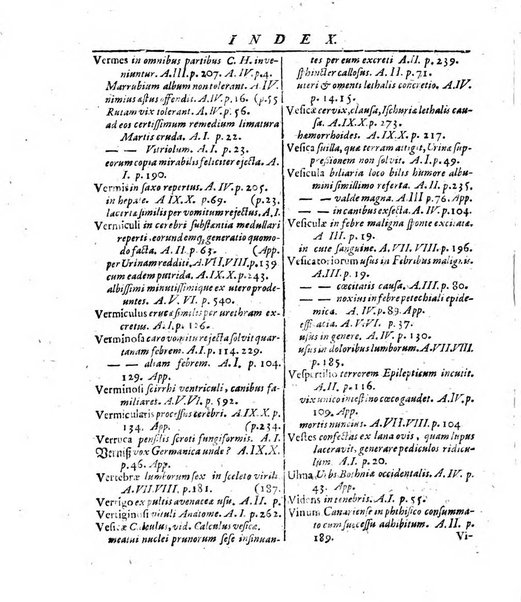 INDEX.
Vermes in omnibus partibus C. H. inve-
niuntur. A.III. p. 207. A.IV. p.4.
Marrubium album non tolerant. A.IV
nimius æstus offendit. A.IV. p.16. (p.55
Rutam vix tolerant. A. IV. p. 96.
ad eos certissimum remedium limatura
Martis cruda. A.I. p. 22.
— — Vitriolum. A.I. p. 23.
eorum copia mirabilis feliciter ejecta. A.
I. p. 190.
Vermis in saxo repertus. A.IV. p. 205.
in hepate. A.IX.X. p. 69. (p.23.
lacertæ similis per vomitum rejectus. A.I.
Vermiculi in cerebri substantia medullari
reperti, eorundemq; generatio quomo-
do facta. A. II. p. 63. (App.
per Urinam redditi. A.VII.VIII. p.139
cum eadem putrida. A.IX.X. p.243.
albissimi minutissimique ex utero prode-
untes. A.V. VI. p. 540.
Vermiculus erucæ similis per urethram ex-
cretus. A.I. p. 126.
Verminosa caro vomitu rejecta solvit quar-
tanam febrem. A.I. p. 114. 229.
— — aliam febrem. A.I. p. 104.
129. App.
Verminosi scirrhi ventriculi, canibus fa-
miliares. A.V.VI. p. 592.
Vermicularis processus cerebri. A.IX.X. p.
134. App. (p.234.
Verruca pensilis scroti fungiformis. A. I.
Vermiß vox Germanica unde? A. IX.X.
p.46. App.
Vertebræ lumborum sex in sceleto virili.
A.VII.VIII. p.181. (187.
Vertigo ex pulvis avenaceæ usu. A. II. p.
Vertiginosi vituli Anatome. A.I. p. 262.
Vesicæ Calculus, vid. Calculus vesicæ.
meatui nuclei prunorum sese insinuan-
tes per eum excreti A. II. p. 239.
sphincter callosus. A. II. p. 71.
uteri & omenti lethalis concretio. A.IV.
p. 14.15.
Vesicæ cervix, clausa, Ischuriæ lethalis cau-
sa. A.IX.X. p. 273.
hæmorrhoides. A.IX.X. p. 217.
Vesica suilla, quæ terram attigit, Urinæ sup-
pressionem non solvit. A.I. p.49.
Vesicula biliaria loco bilis humore albu-
mini simillimo referta. A. II. p.235.
— — valde magna. A.III. p.76. App.
— — in canibus exsecta. A.IV. p. 104.
Vesiculæ in febre maligna sponte excitatæ.
A. I. p. 79.
in cute sanguineæ. A.VII.VIII. p. 196.
Vesicatoriorum usus in Febribus malignis.
A.III. p. 83.
— — cœcitatis causa. A.III. p. 80.
— — noxius in febre petechiali epide-
mica. A.IV. p. 89. App.
efficatia. A.V.VI. p. 37.
usus in genere. A.IV. p. 130.
usus in doloribus lumborum. A.VII.VIII.
p. 185.
Vespertilio terrorem Epilepticum incutit.
A. II. p. 116.
vix unico infestino cœco gaudet. A.IV. p.
109. App.
mortis nuncius. A.VII.VIII. p. 104
Vestes confectas ex lana ovis, quam lupus
laceravit, gerentes pediculos ridicu-
lum. A.I. p. 20.
Ulna Urbis Bothniæ occidentalis. A. IV. p.
43. App.
Videns in tenebris. A.I. p. 55.
Vinum Canariense in phthisico consumma-
to cum successu adhibitum. A. II. p.
189. Vi-